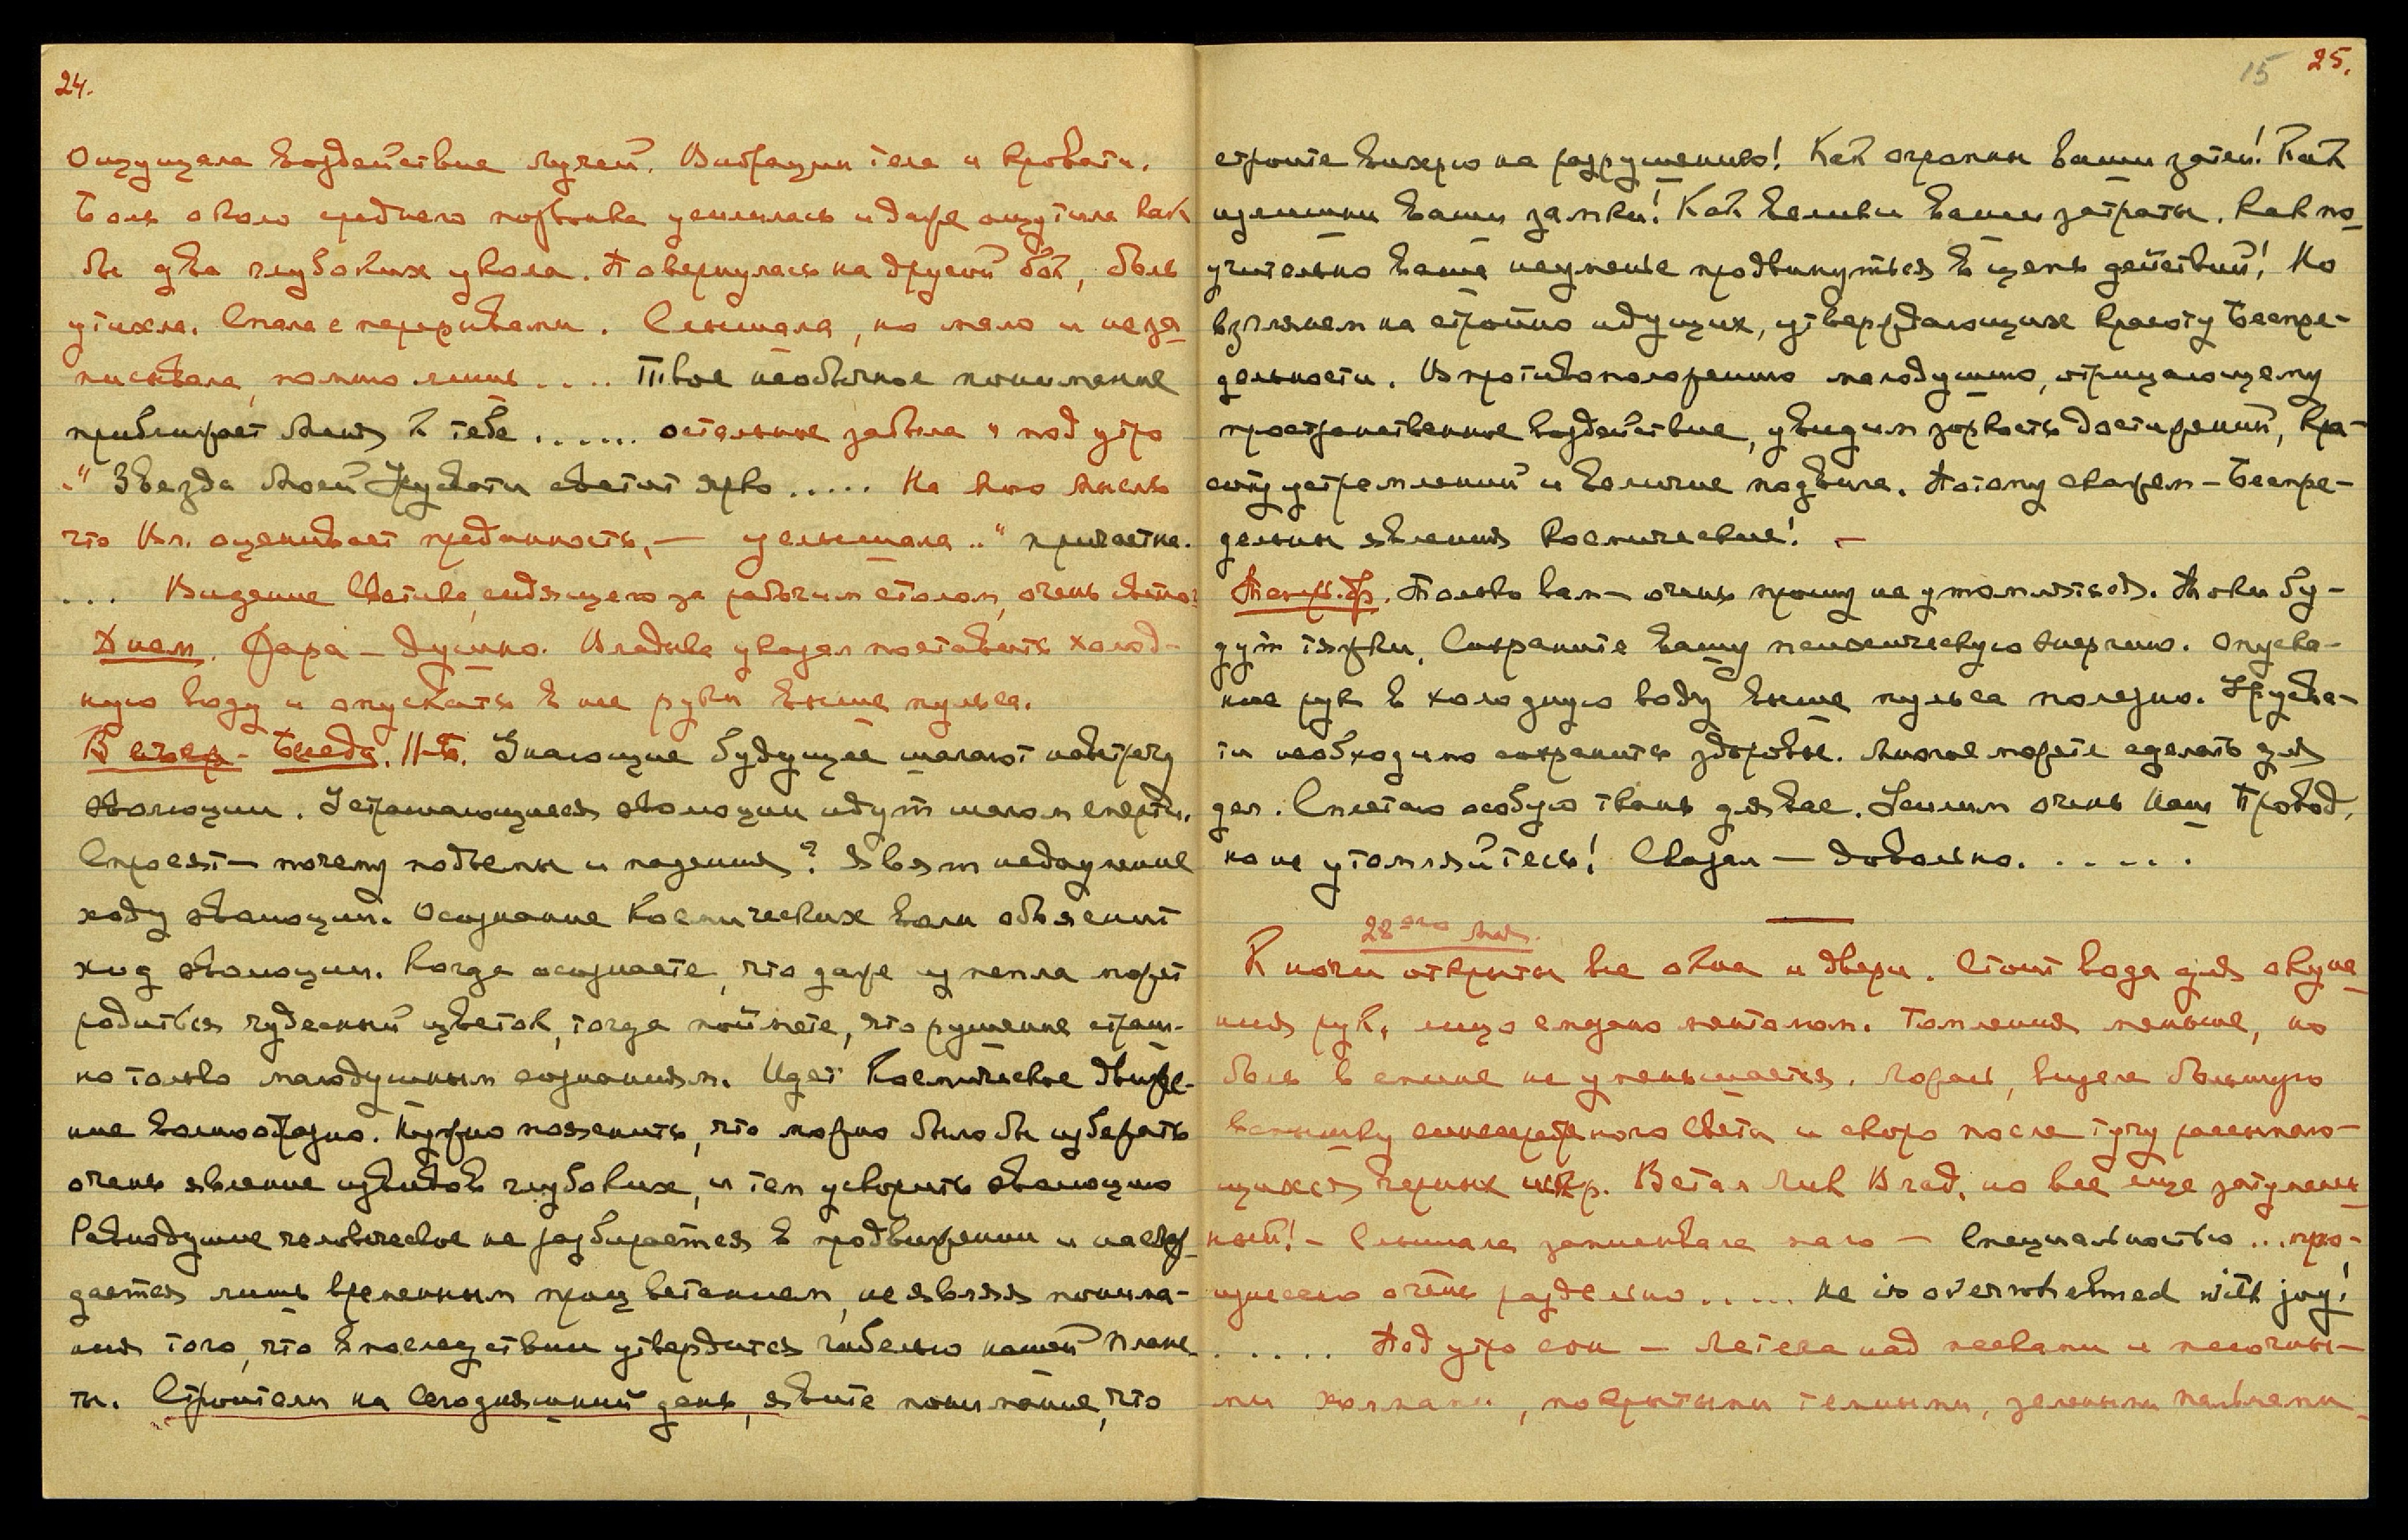 24.
Ощущала воздействие Лучей. Вибрации тела и кровати.
Боль около среднего позвонка усилилась и даже ощутила как
бы два глубоких укола. Повернулась на другой бок, боль
утихла. Спала с перерывами. Слышала, но мало и не за
писывала, помню лишь .... Твое необычное понимание
приближает Меня к тебе ...... остальное забыла и под утро
.." Звезда Моей Урусвати светит ярко ..... На мою мысль
что Вл. оценивает преданность, — услышала .." причастна.
... Видение Светика, сидящего за рабочим столом, очень
Днем. Жара — душно. Владыка указал поставить холод-
ную воду и опускать в нее руки выше пульса.
Вечер - Беседа. Н-Б. Знающие будущее шагают навстречу
эволюции. Устрашающиеся эволюции идут шагом смерти.
Спросят — почему подъемы и падения? Явят недоумение
ходу эволюции. Осознание Космических волн объяснит
ход эволюции. Когда осознаете, что даже из пепла может
родиться чудесный цветок, тогда поймете, что рушение страш-
но только малодушным сознаниям. Идет Космическое движе-
ние волнообразно. Нужно пояснить, что можно было бы избежать
очень явление извивов глубоких, и тем ускорить эволюцию
Равнодушие человеческое не разбирается в продвижении и наслаж-
дается лишь временным процветанием, не являя понима-
ния того, что впоследствии утвердится гибелью нашей Плане
ты. Строители на сегодняшний день, явите понимание, что
15 25.
строите башню на разрушению! Как огромны ваши затеи! Как
изишни ваши замки! Как велики ваши затраты. Как по
учительно ваше неуменье продвинуться в цепь действий! Но
взглянем на стройно идущих, утверждающих красоту Беспре-
дельности. В противоположению малодушию, отрицающему
пространственное воздействие, увидим зоркость достижений, кра-
соту устремлений и величие подвига. Потому скажем — Беспре-
дельны явления Космические! —
Только вам — очень прошу не утомляться. Токи бу-
дут тяжки. Сохраните вашу психическую энергию. Опуска-
ние рук в холодную воду выше пульса полезно. Урусва-
ти необходимо сохранить здоровье. Многое можете сделать для
дел. Сплетаю особую ткань для вас. Усилим очень Наш Провод,
но не утомляйтесь! Сказал — довольно. .....
28 ого Мая.
К ночи открыты все окна и двери. Стоит вода для окуна
ния рук, лицо смазано ментолом. Томления меньше, но
боль в спине не уменьшается. Ложась, видела большую
вспышку синего света и скоро после тучу рассыпаю-
щихся черных искр. Встал Лик Влад. но все еще затумане
ный! — Слышала записывала мало — Специальностью ... про-
изнесено очень раздельно ..... He is overwhelmed with joy!
..... Под утро сон — Летела над песками и песочны-
ми холмами, покрытыми темными, зелеными